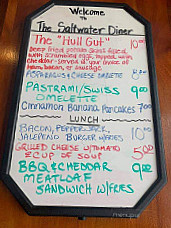 Welcome
To
The Saltwater Diner
The "Hull Gut" 10.00
Deep fried potato skins filled
with scrambled eggs, topped with
cheddar. served w/ your choice of
ham, bacon, or sausage
Asparagus & Cheese Omelette 8.00
Pastrami/Swiss 9.00
Omelette
Cinnamon Banana Pancakes 7.00
LUNCH
Bacon, Pepper Jack, 10.00
Jalepeno Burger w/fries
Grilled Cheese w/Tomato 5.00
& Cup of Soup
BBQ & Cheddar 9.00
Meatloaf
Sandwich w/fries